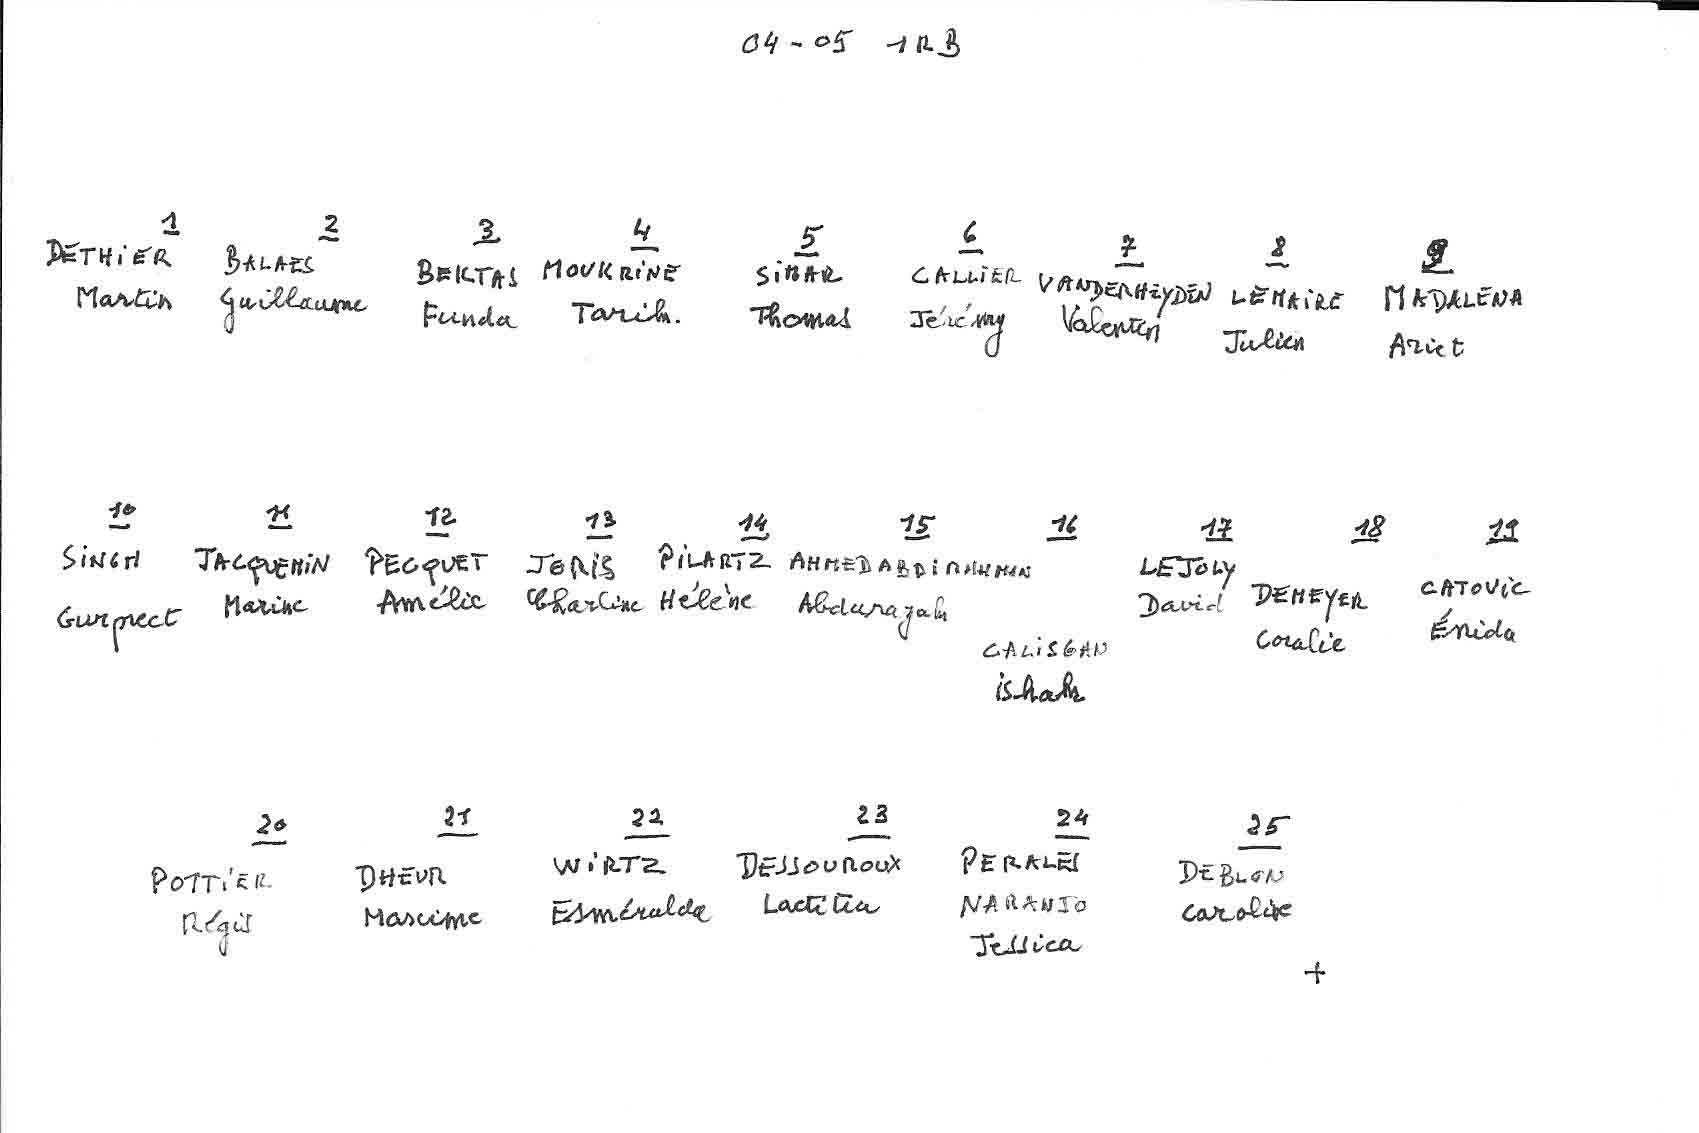 04-05 1RB
1 2 3 4 5 6 7 8 9
DETHiER BALAES BEKTAS MOUKRiNE SiMAR CALLiER VANDERHEYDEN LEMAIRE MADALENA
Martin Guillaume Funda Tarik. Thomas Jérémy Valentin Julien
10 11 12 13 14 15 16 17 18 19
SiNGH JACQUEMiN PECQUET JORiS PiLARTZ AHMED ABDiRAHMAN CALiSGAN LEJOLY DEMEYER CATOViC
Gurpreet Marine Amélie Charline Hélène Abdurazak ishak David Coralie Énida
20 21 22 23 24 25
POTTiER DHEUR WiRTZ DESSOUROUX PERALES DEBLON
Régis Maxime Esméralda Laetitia NARANJO Caroline
Jessica
+